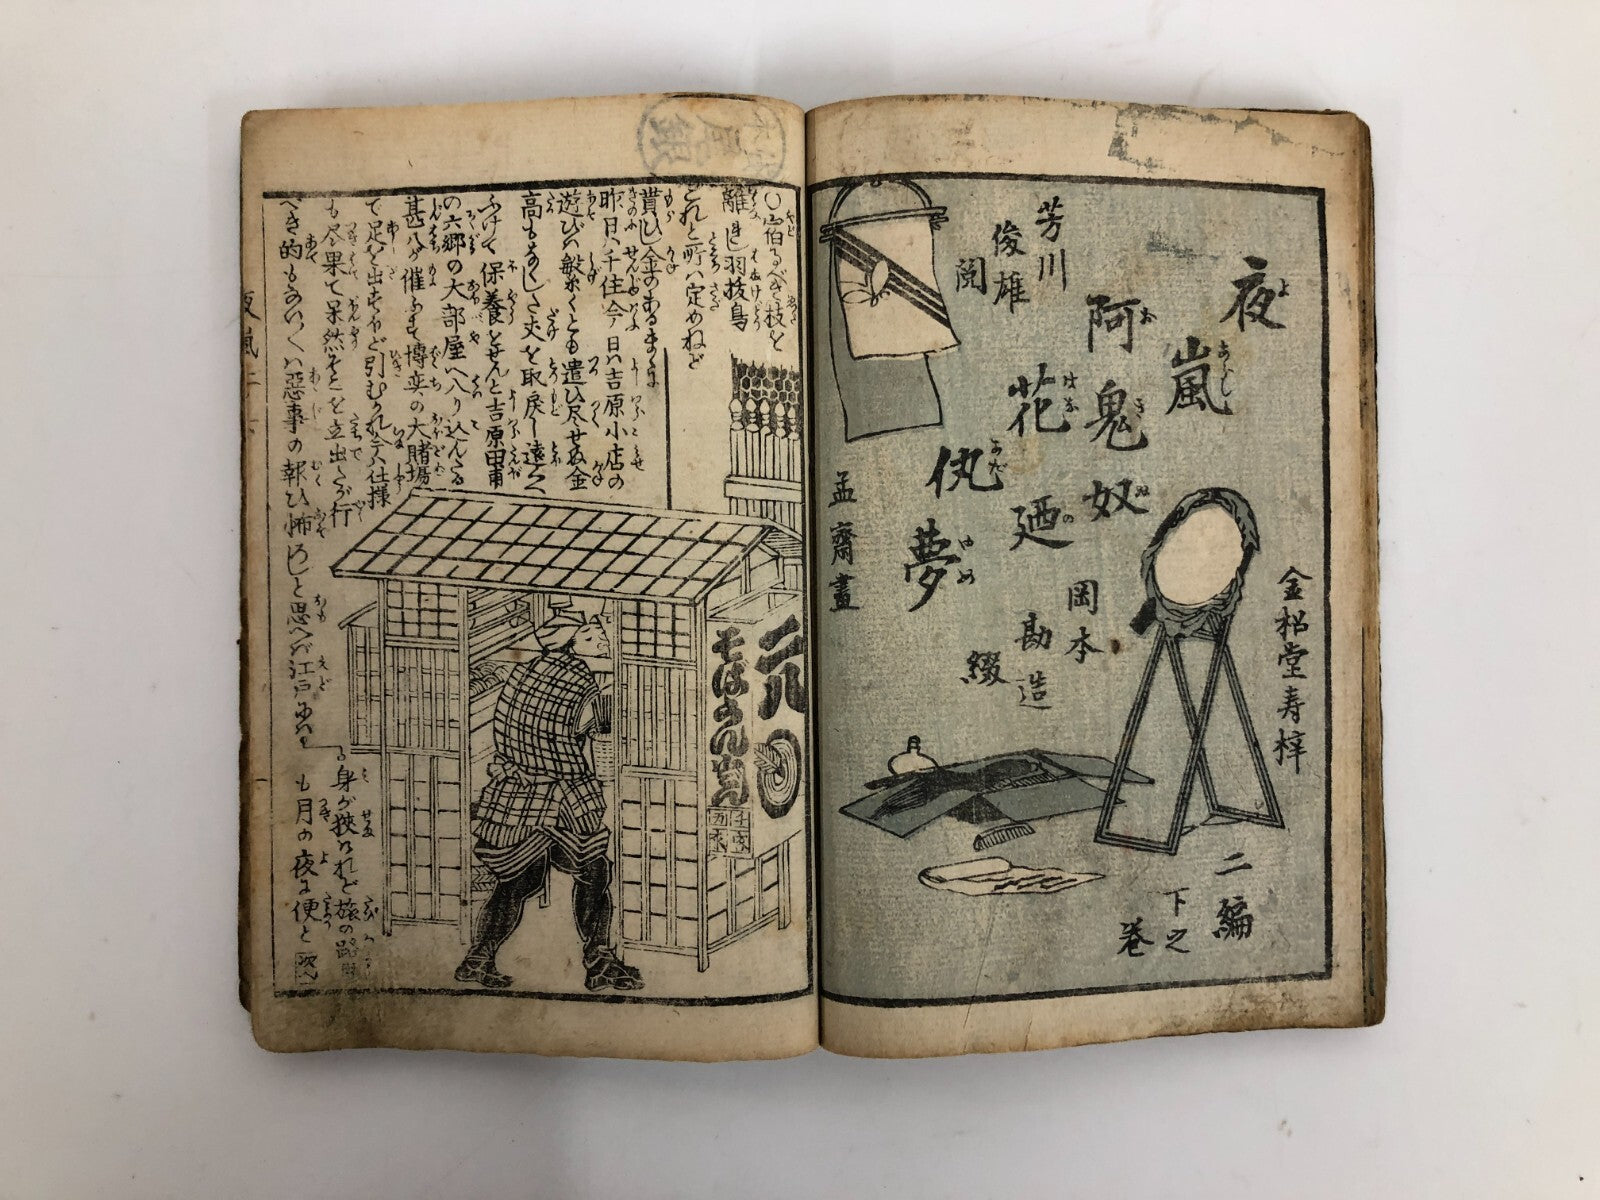 夜嵐
阿鬼奴
花廼
仇夢
芳川
俊雄
閲
岡本
勘造
綴
孟齋畫
金松堂寿梓
二編
下之
巻
○宿るべき枝を
離れし羽抜鳥
これと町は定めねど
貰ひし金のあるまゝに
昨日ハ千住今日ハ吉原小店の
遊びハ繁くとも遣ひ尽せぬ金
高もなくした丈を取戻し遠く
ふけて保養をせんと吉原田甫
の六郷の大部屋へ入り込んだる
甚八が催ふす博奕の大賭場
で足を出すほど引むかれ今ハ仕様
も尽果て呆然そこを立出しが行
べき的もあらバ悪事の報ひ怖ろしと思へバ江戸にハ
身が狭けれど旅の路用
も月の夜に便と
二八
そばうんどん